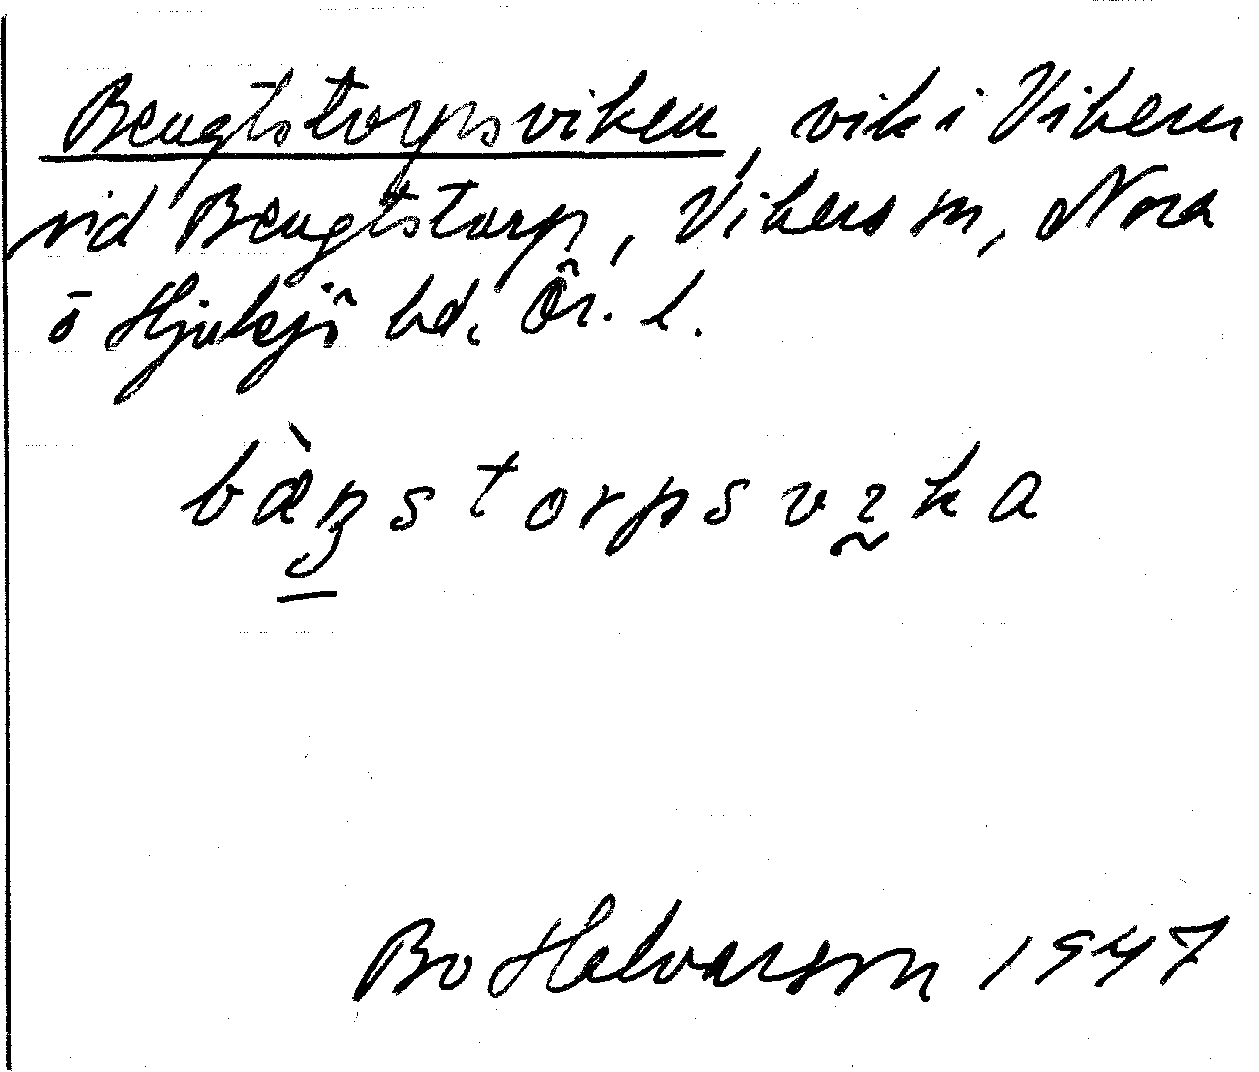 Bengtstorpsviken, vik i Vikern
vid Bengtstorp, Vikers sn, Nora
o Hjulsjö bd. Ör. l.
bæ̀ŋstorpsvıka
Bo Halvarson 1947